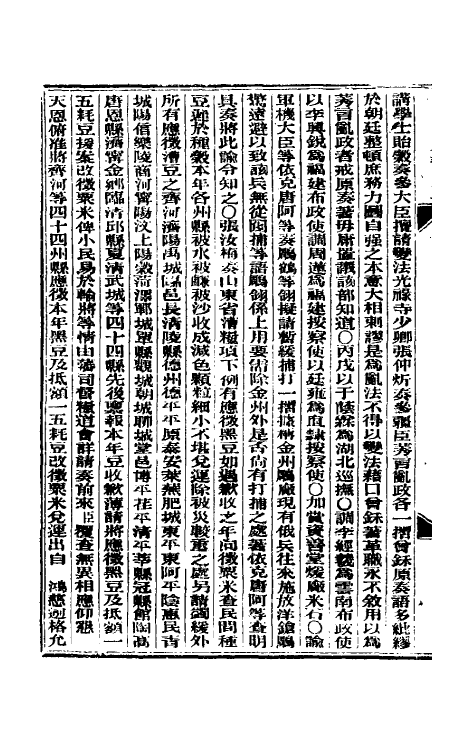 講學士貽穀奏參大臣擅請變法光祿寺少卿張仲炘奏參疆臣莠言亂政各一摺曾鉌原奏語多紕繆
於朝廷整頓庶務力圖自强之本意大相刺謬是爲亂法不得以變法藉口曾鉌著革職永不敘用以爲
莠言亂政者戒原奏著毋庸置議該部知道〇丙戌以于蔭霖爲湖北巡撫〇調李經羲爲雲南布政使
以李興銳爲福建布政使調周蓮爲福建按察使以廷雍爲直隸按察使〇加賞資善堂煖廠米石〇諭
軍機大臣等依克唐阿等奏鵰鶴等翎擬請暫緩捕打一摺據稱金州鵰廠現有俄兵往來施放洋鎗鵰
鷲遠避以致該兵無從圍捕等語鵰翎係上用要需除金州外是否尚有打捕之處著依克唐阿等查明
具奏將此諭令知之〇張汝梅奏山東省漕糧項下例有應徵黑豆如遇歉收之年向徵粟米查民間種
豆雜於種穀本年各州縣被水被鹻被沙收成減色顆粒細小不堪兌運除被災較重之處另請蠲緩外
所有應徵漕豆之齊河濟陽禹城臨邑長清陵縣德州德平平原泰安萊蕪肥城東平東阿平陰惠民青
城陽信樂陵商河寧陽汶上陽穀壽張鄆城單縣觀城朝城聊城堂邑博平茌平清平莘縣冠縣館陶高
唐恩縣濟寧金鄉臨清邱縣夏清武城等四十四縣先後稟報本年豆收歉薄請將應徵黑豆及抵額一
五耗豆援案改徵粟米俾小民易於輸將等情由藩司督糧道會詳請奏前來臣覆查無異相應仰懇
天恩俯准將齊河等四十四州縣應徵本年黑豆及抵額一五耗豆改徵粟米兌運出自　鴻慈逾格允